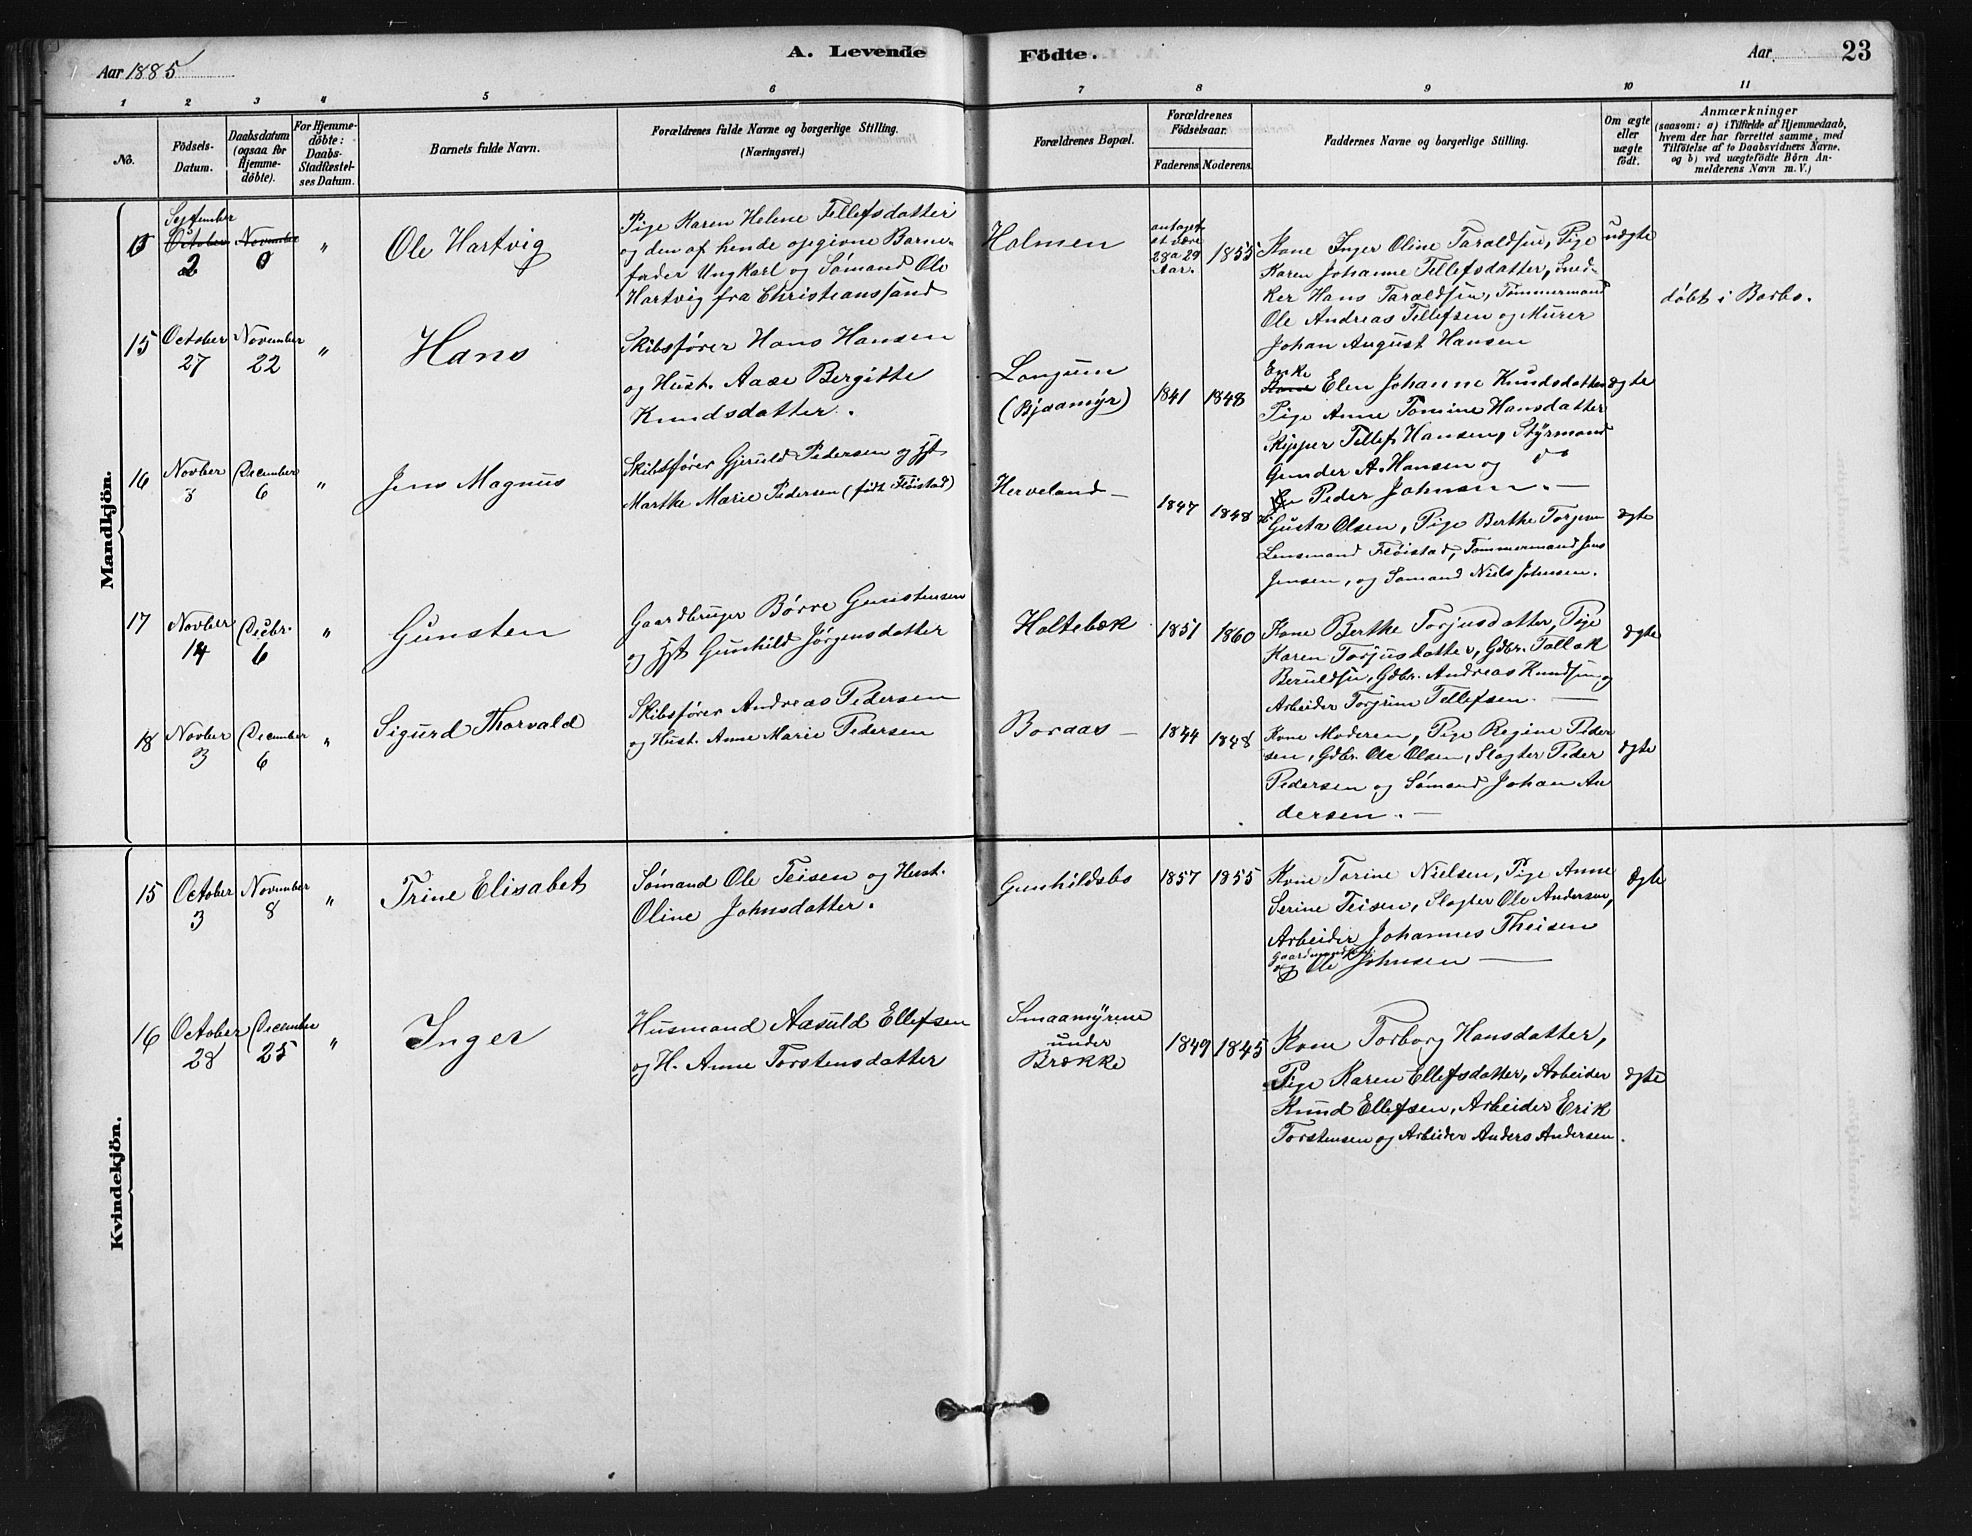 Aar 1885
A. Levende
Födte.
Aar
23
1 2 3 4 5 6 7 8 9 10 11
No.
Födsels-
Datum.
Daabsdatum
(ogsaa for
Hjemme-
döbte).
For Hjemme-
döbte:
Daabs-
Stadfæstel-
ses Datum.
Barnets fulde Navn.
Forældrenes fulde Navne og borgerlige Stilling.
(Næringsvei.)
Forældrenes Bopæl.
Forældrenes
Födselsaar.
Faderens. Moderens.
Faddernes Navne og borgerlige Stilling.
Om ægte
eller
uægte
födt.
Anmærkninger
(saasom: a) i Tilfælde af Hjemmedaab,
hvem der har forrettet samme, med
Tilföielse af to Daabsvidners Navne,
og b) ved uægtefödte Börn An-
melderens Navn m. V.)
Mandkjön.
September
October
2
November
"
Ole Hartvig
Pige Karen Helene Tellefsdatter
og den af hende opgivne Barne-
fader Ungkarl og Sømand Ole
Hartvig fra Christianssand
Holmen
antaget
at være
28 a 29
Aar.
1855
Kone Inger Oline Taraldsen, Pige
Karen Johanne Tellefsdatter, Sned-
ker Hans Taraldsen, Tømmermand
Ole Andreas Tellefsen og Murer
Johan August Hansen
uægte
døbt i Barbo.
15
October
27
November
22
"
Hans
Skibsfører Hans Hansen
og Hust. Aase Bergitte
Knudsdatter.
Longum
(Bjaamÿr)
1841
1848
Enke
Elen Johanne Knudsdatter
Pige Anne Tomine Hansdatter
Skipper Tellef Hansen, Stÿrmand
Gunder A. Hansen og do
Peder Johnsen. —
ægte
16
Novber
3
December
6
"
Jens Magnus
Skibsfører Gjeruld Pedersen og Hst
Marthe Marie Pedersen (født Fløistad)
Herveland —
1847
1848
Gusta Olsen, Pige Berthe Torjesen
Lensmand Fløistad, Tømmermand Jens
Jensen, og Sømand Niels Johnsen.
ægte
17
Novber
14
Decbr.
6
"
Gunsten
Gaardbruger Børre Gunstensen
og Hst Gunhild Jørgensdatter
Holtebæk
1851
1860
Kone Berthe Torjusdatter, Pige
Karen Torjusdatter, Gdbr. Tallak
Beruldsen, Gdbr. Andreas Knudsen og
Arbeider Torjrim Tellefsen. —
ægte
18
Novber
3
December
6
"
Sigurd Thorvald
Skibsfører Andreas Pedersen
og Hust. Anne Marie Pedersen
Boraas —
1844
1848
Kone Moderen, Pige Regine Peder
sen, Gdbr. Ole Olsen, Slagter Peder
Pedersen og Sømand Johan An
dersen. —
ægte
Kvindekjön.
15
October
3
November
8
"
Trine Elisabet
Sømand Ole Teisen og Hust.
Oline Johnsdatter.
Gunhildsbo
1857
1855
Kone Torine Nielsen, Pige Anne
Serine Teisen, Slagter Ole Andersen,
Arbeider Johannes Theisen
og Ole Johnsen —
Ægte
16
October
28
December
25
"
Inger
Husmand Aasuld Ellefsen
og H. Anne Torstensdatter
Smaamÿrene
under
Brække
1849
1845
Kone Torborg Hansdatter,
Pige Karen Ellefsdatter, Arbeider
Knud Ellefsen, Arbeider Erik
Torstensen og Arbeider Anders Andersen.
ægte